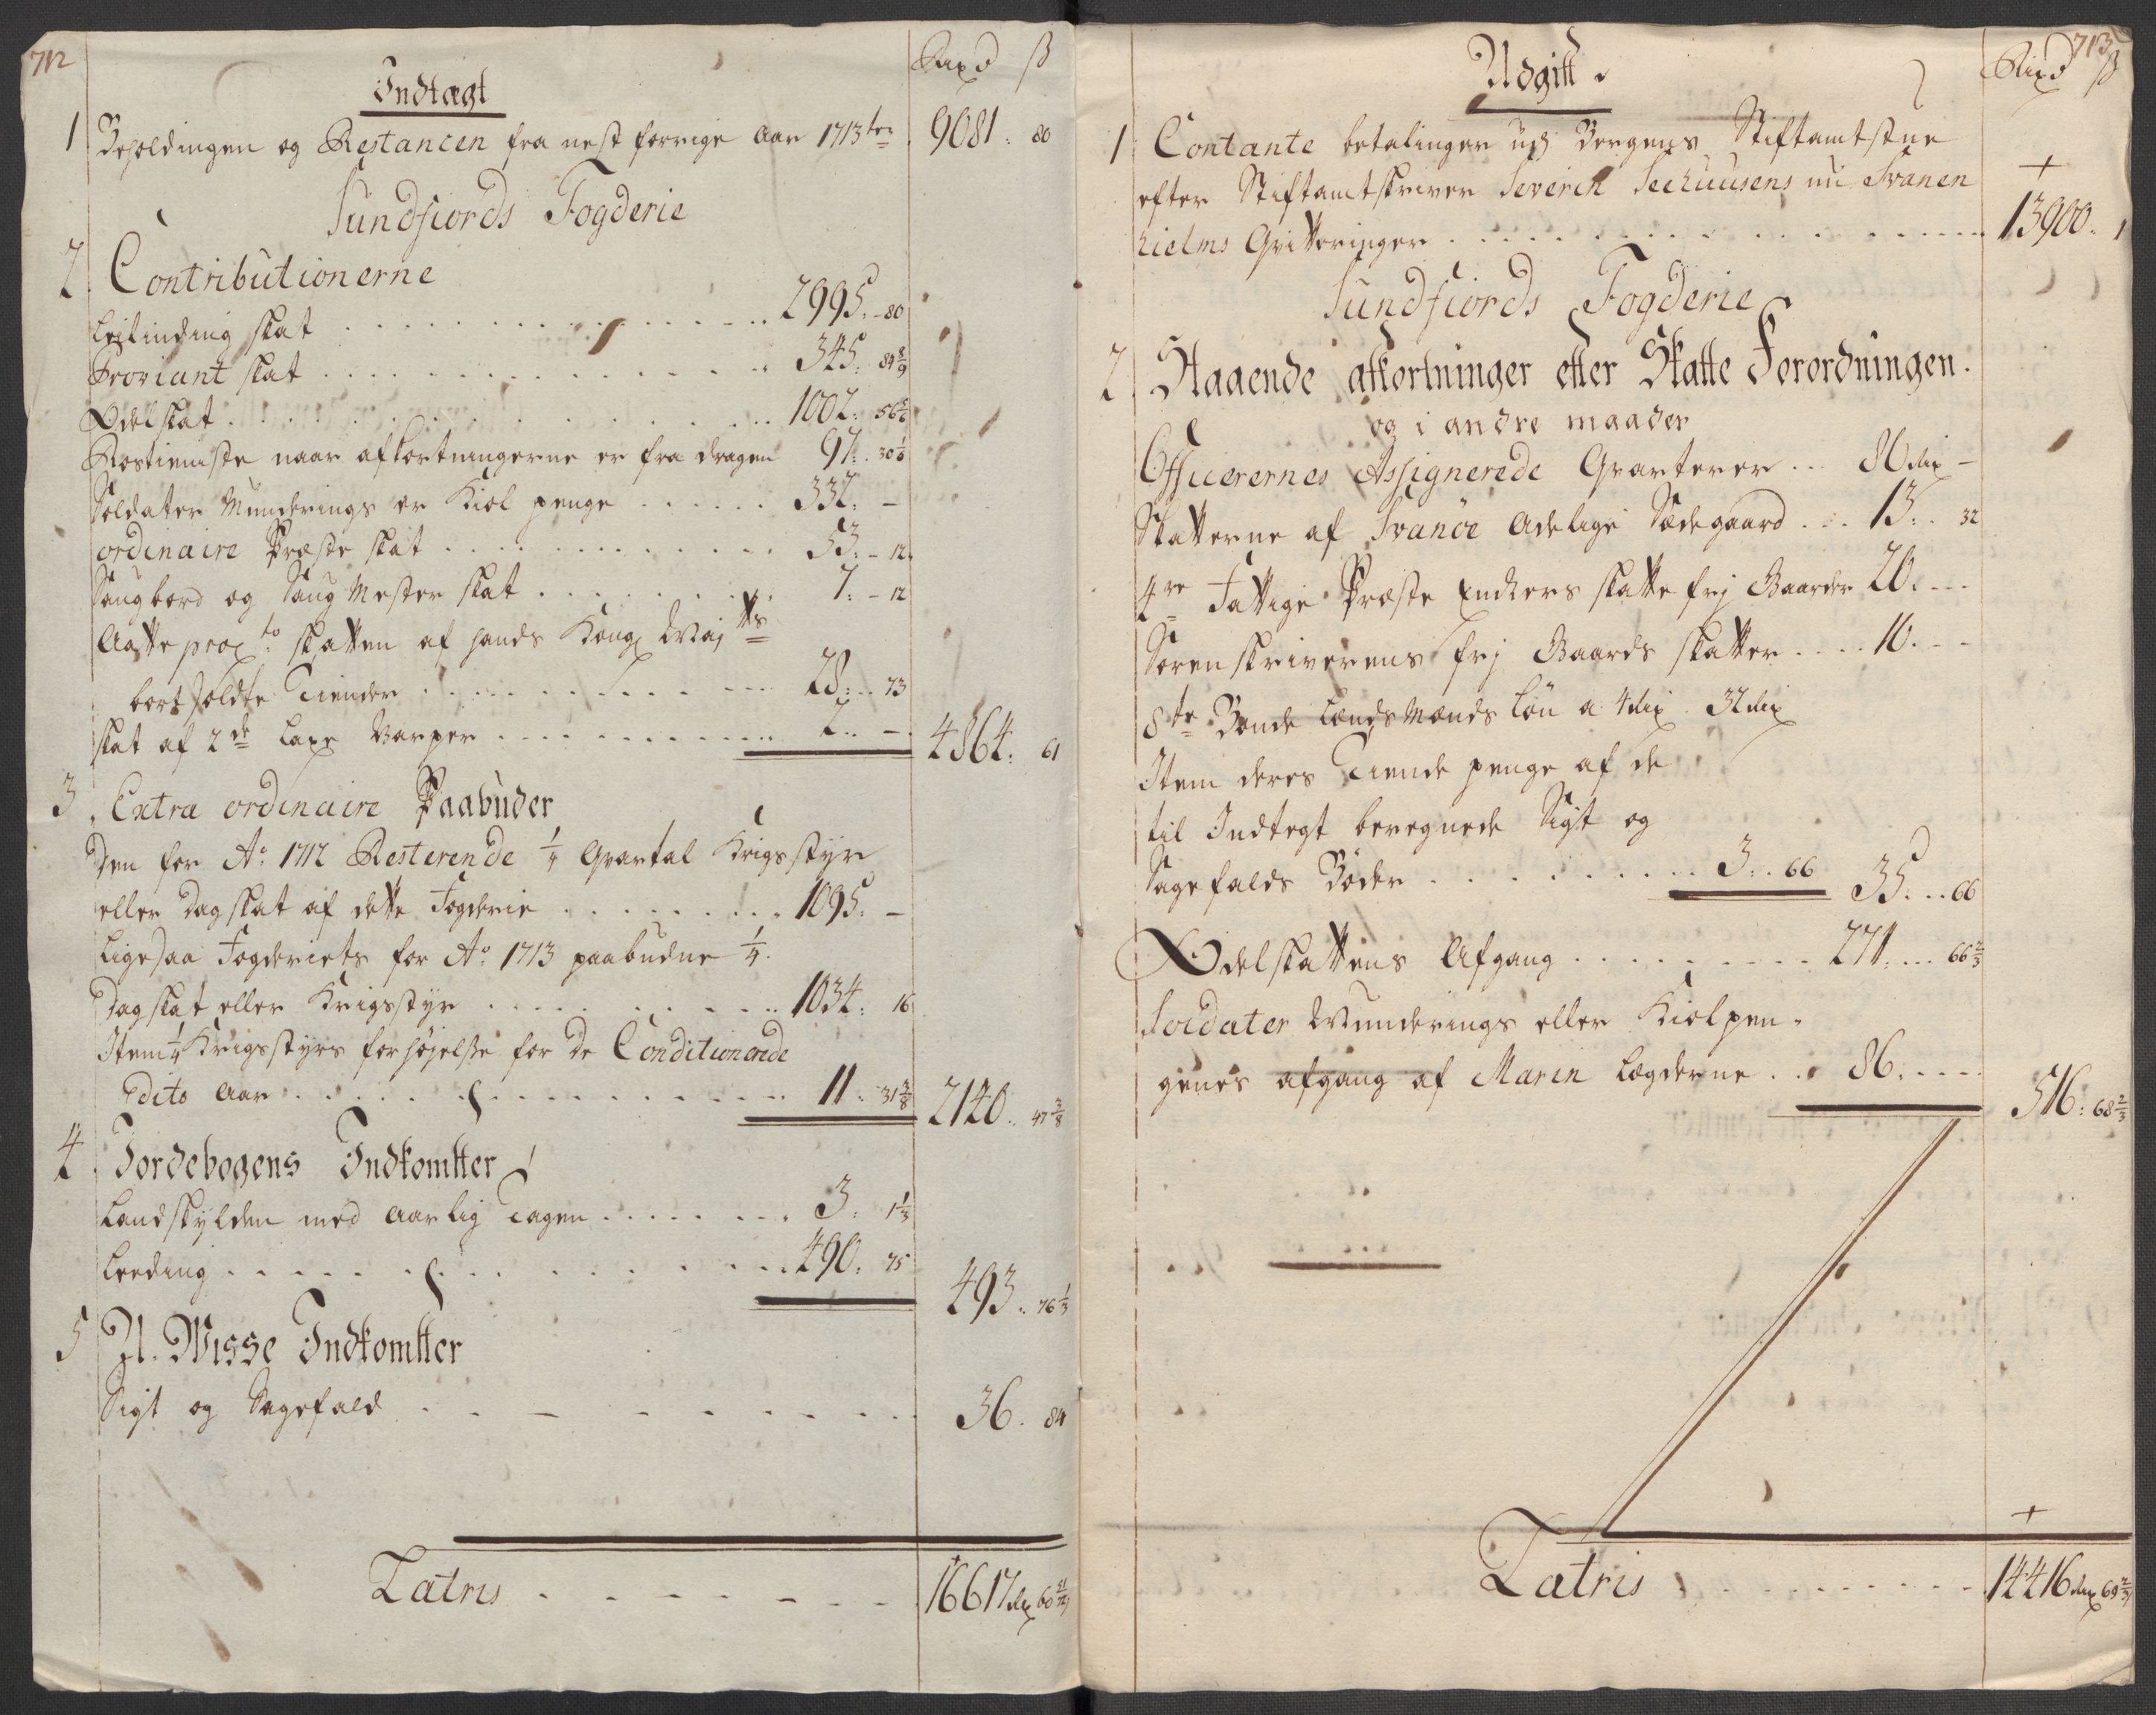 712
Rixd ß
Indtægt
1 Beholdingen og Restancen fra nest forrige Aar 1713ten 9081: 80
Sundfiords Fogderie
2 Contributionerne
Leilending skat 2995. - 80
Proviant skat 345. 84 8/9
Odel skat 1002: 56 5/6
Rostieniste naar afkortningerne er fra dragen 97. 30
Soldater Munderings er Kiol penge 332. -
ordinaire Præste skat 53. - 12
Saugbord og Saug Mester skat 7. - 12
Aatte procto skatten af hands Kongl Majtts
bortsoldte Tiender 28. 73
skat af 2de Laxe Varper 2. -
4864. 61
3. Extra ordinaire Paabuder
Den for Ao 1712 Resterende 1/4 Qvartal Krigsstyr
eller Dagskat af dette Fogderie 1095. -
Ligesaa Fogderiets for Ao 1713 paabudne 1/4
Dagskat eller Krigsstyr 1034. 16
Item 1/4 Krigsstyrs forhøjelse for de Conditionerede
dito Aar 11. 31 3/8
2140. 47 3/8
4. Jordebogens Indkombster
Landskylden med aarlig Tagen 3. 1 1/3
Leeding 490. 75
493. 76 1/3
5 U. Wisse Indkombster
Sigt og Sagefald 36. 84
Latris 16617 dlr 60
713
Rixd ß
Udgift.
1 Contante betalinger udj Bergens Stiftamtstue
efter Stiftamtskriver Severin Seehuusens nu Svanen
hielms Qvitteringer 13900. 1
Sundfiords Fogderie
2. Staaende afkortninger efter Skatte Forordningen.
og i andre maader
Officerernes Assignerede Qvarterer 80 dlr -
Skatterne af Svanöe Adelige Sædegaard 13. 32
4re Fattige Præste Enckers skatte frj Gaarder 20. -
Sorenskriverens frj Gaards skatter 10. -
8te Bonde Lends Mænds Løn a 4 dlr 32 dlr
Item deres Tiende penge af de
til Indtegt beregnede Sigt og
Sagefalds Bøder 3. 66 35. 66
Odelskattens Afgang 271. 66 2/3
Soldater Munderings eller Kiolpen-
genes afgang af Marin Legderne 86. -
516: 68 2/3
Latris 14416 dlr 69 2/3